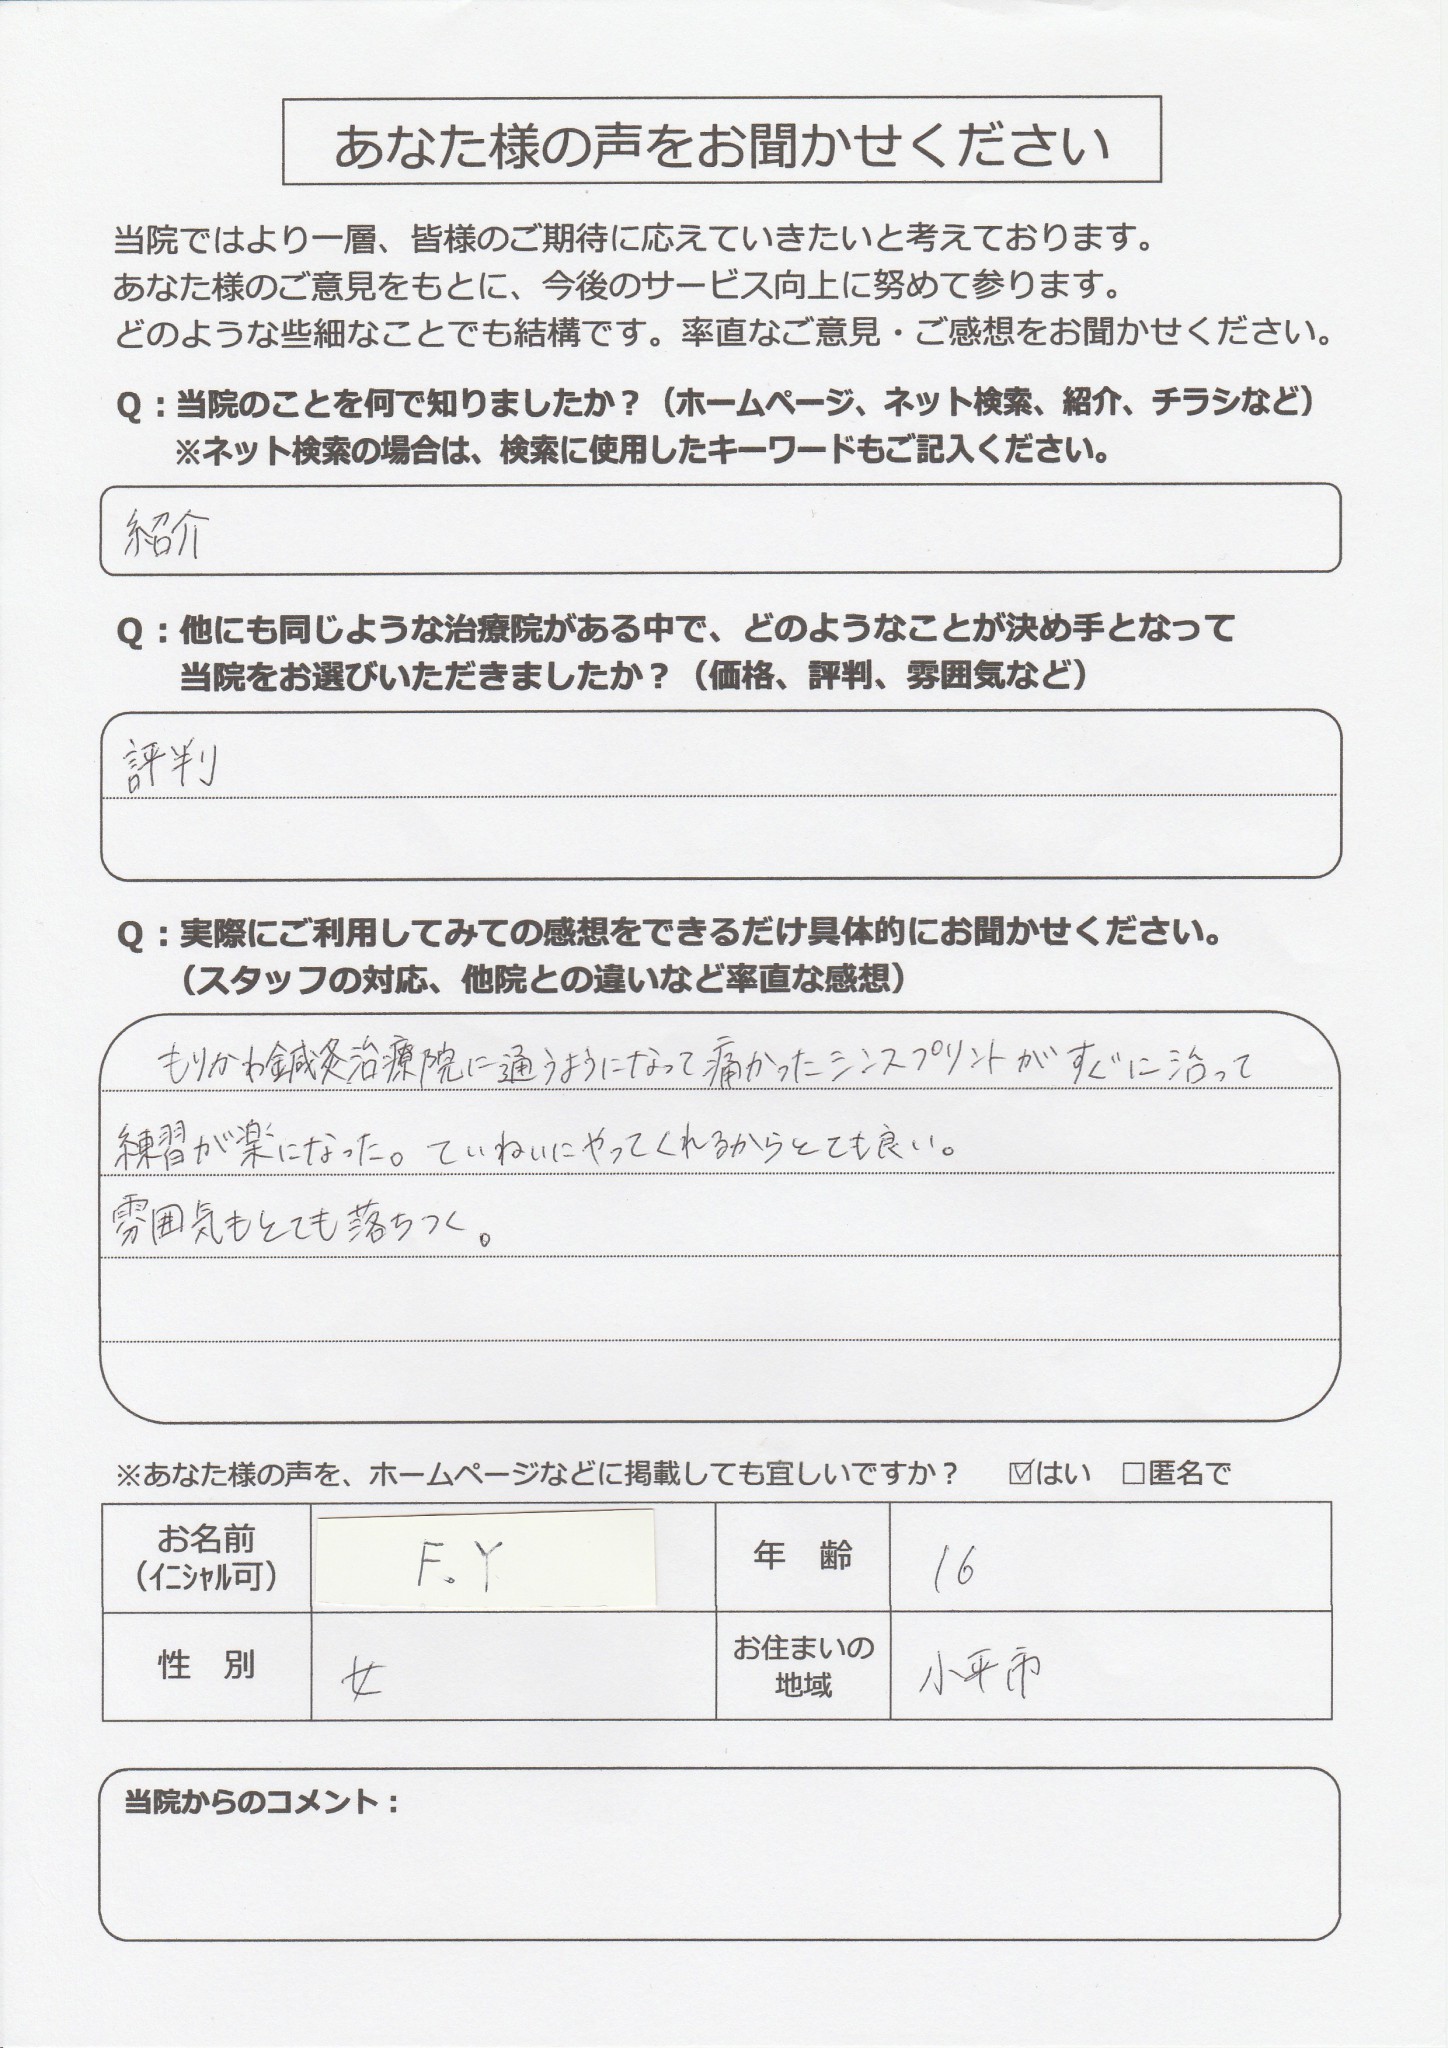 あなた様の声をお聞かせください
当院ではより一層、皆様のご期待に応えていきたいと考えております。
あなた様のご意見をもとに、今後のサービス向上に努めて参ります。
どのような些細なことでも結構です。率直なご意見・ご感想をお聞かせください。
Q：当院のことを何で知りましたか？（ホームページ、ネット検索、紹介、チラシなど）
※ネット検索の場合は、検索に使用したキーワードもご記入ください。
紹介
Q：他にも同じような治療院がある中で、どのようなことが決め手となって
当院をお選びいただきましたか？（価格、評判、雰囲気など）
評判
Q：実際にご利用してみての感想をできるだけ具体的にお聞かせください。
（スタッフの対応、他院との違いなど率直な感想）
もりかわ鍼灸治療院に通うようになって痛かったシンスプリントがすぐに治って
練習が楽になった。ていねいにやってくれるからとても良い。
雰囲気もとても落ちつく。
※あなた様の声を、ホームページなどに掲載しても宜しいですか？ ☑はい □匿名で
お名前
（ｲﾆｼｬﾙ可）
F.Y
年 齢
16
性 別
女
お住まいの
地域
小平市
当院からのコメント：